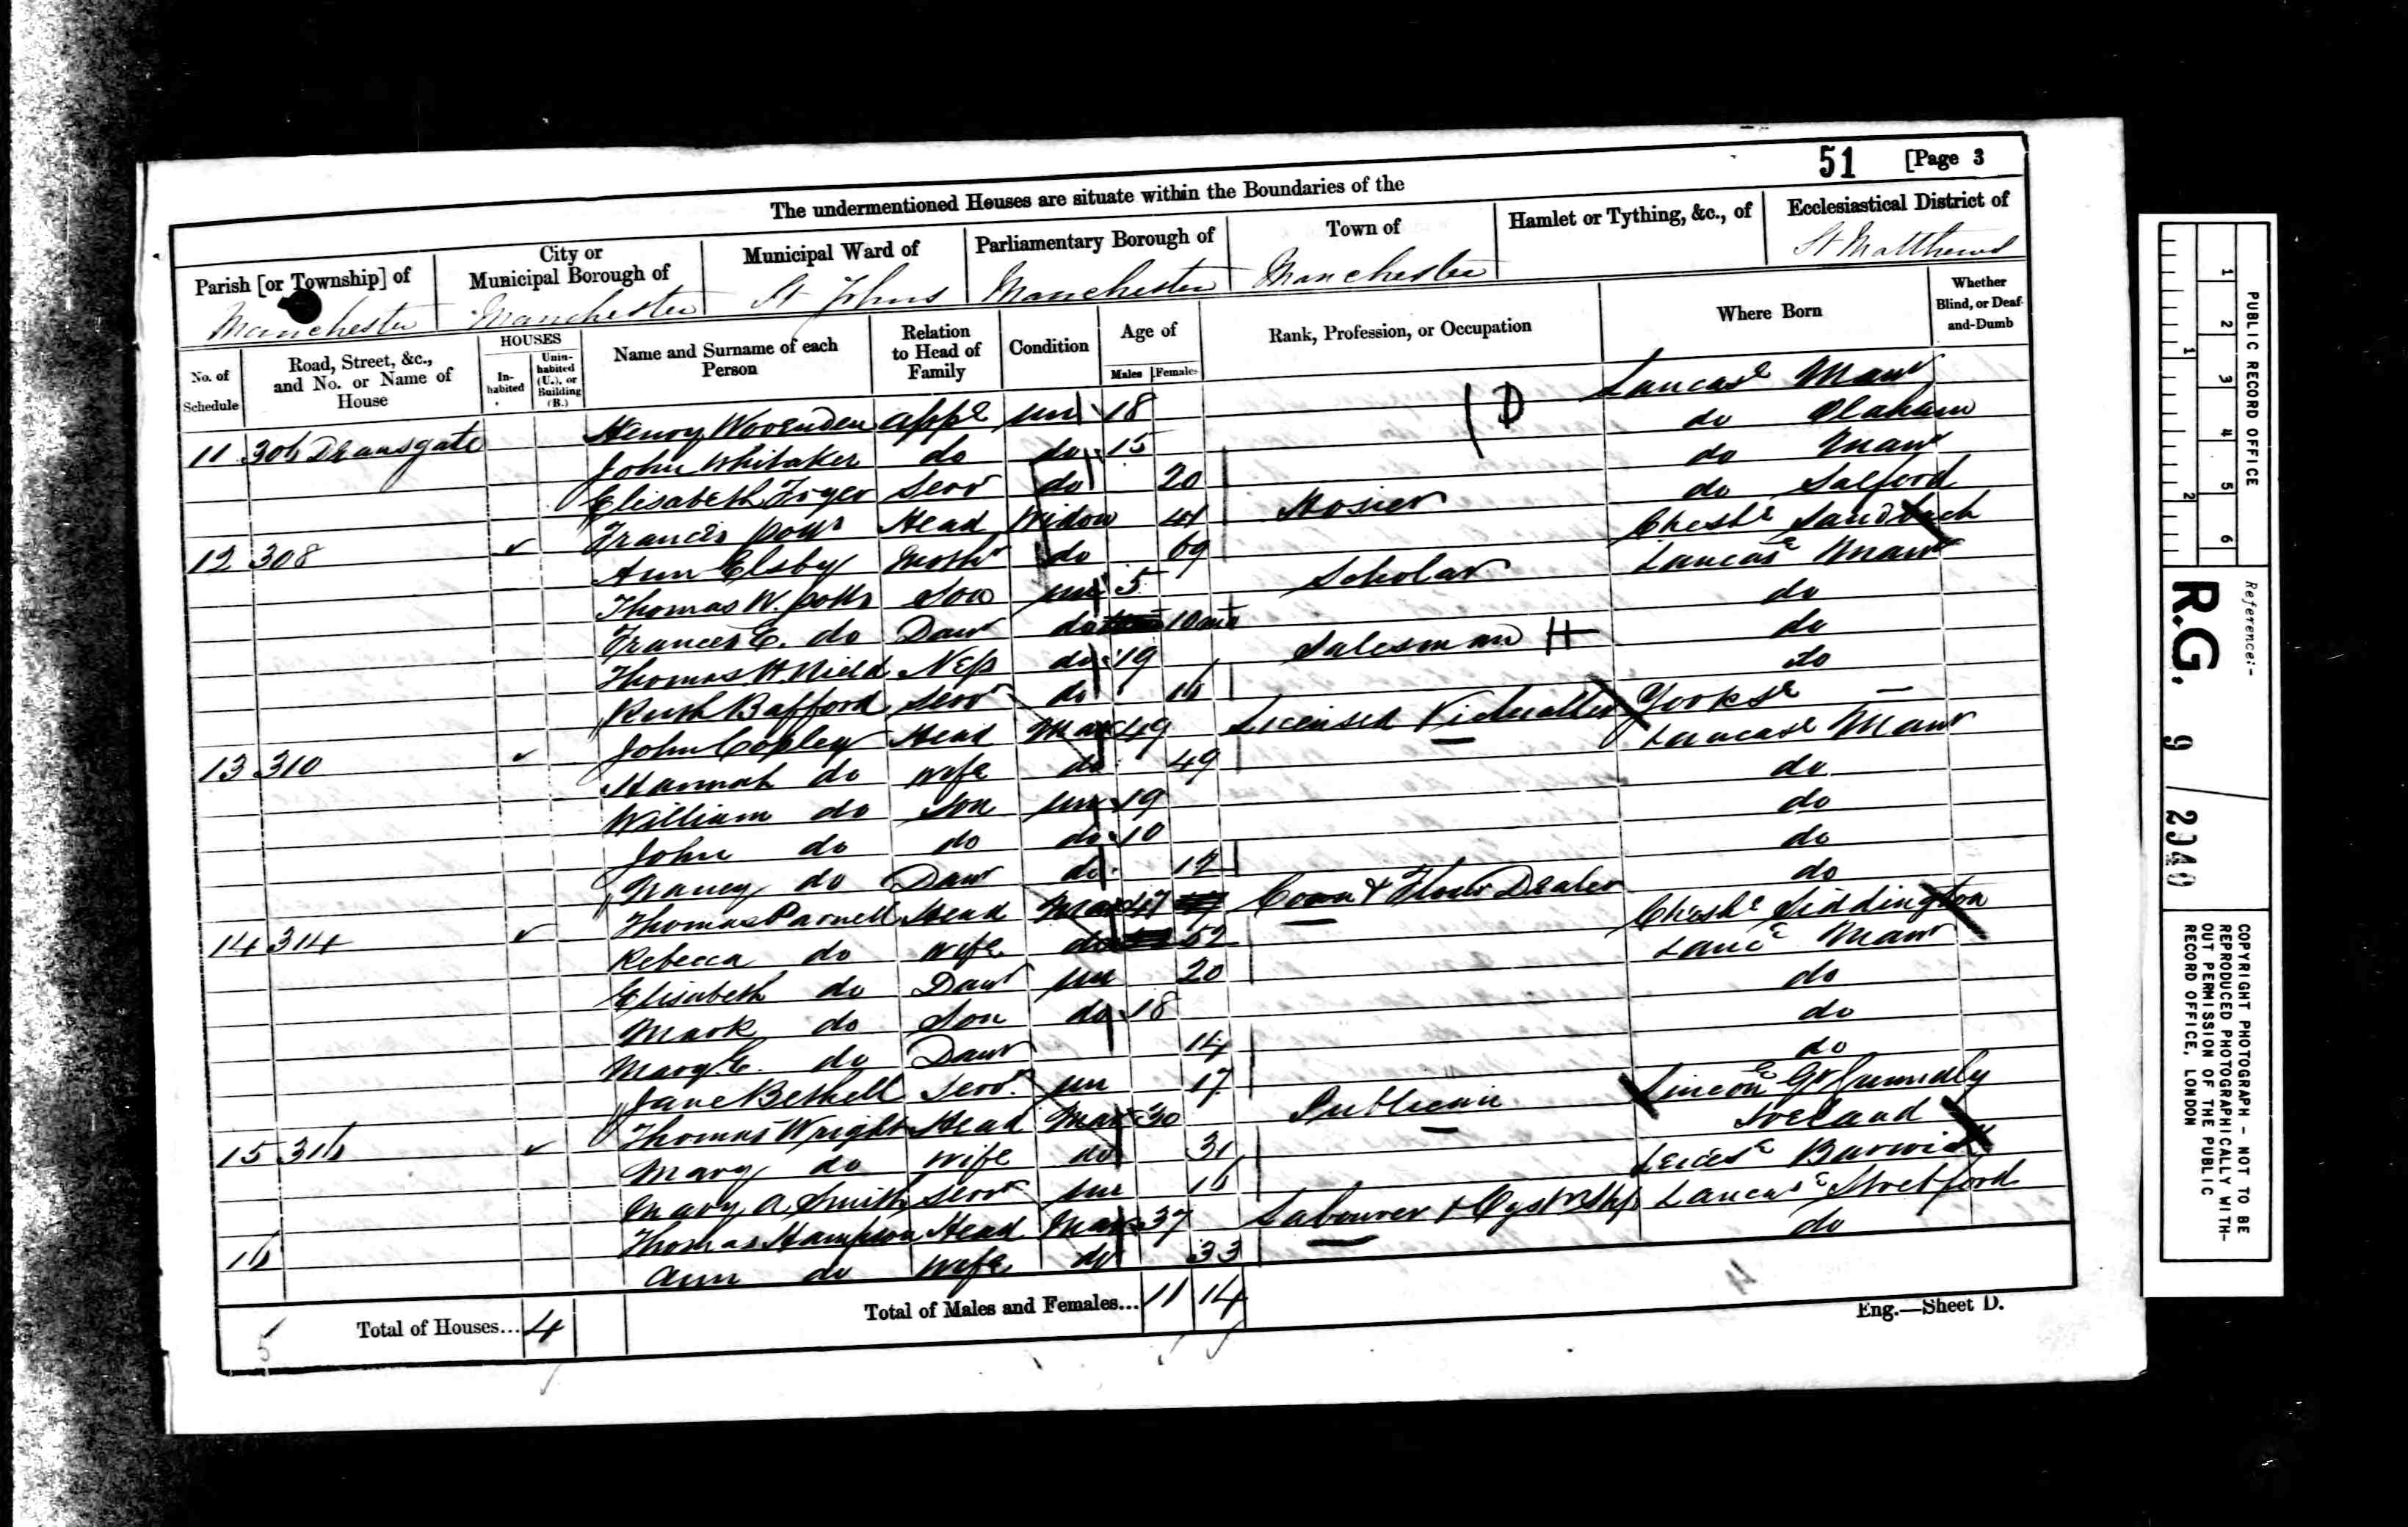 51 [Page 3
The undermentioned Houses are situate within the Boundaries of the
Parish [or Township] of
City or Municipal Borough of
Municipal Ward of
Parliamentary Borough of
Town of
Hamlet or Tything, &c., of
Ecclesiastical District of
Manchester Manchester St Johns Manchester Manchester St Matthews
No. of Schedule
Road, Street, &c., and No. or Name of House
HOUSES
In-habited
Unin-habited (U.), or Building (B.)
Name and Surname of each Person
Relation to Head of Family
Condition
Age of
Males Females
Rank, Profession, or Occupation
Where Born
Whether Blind, or Deaf-and-Dumb
11 306 Deansgate Henry Wovenden appe un 18 D Lancase Manr
John Whitaker do do 15 do Oldham
Elisabeth Serv do 20 do Manr
12 308 Francis Potts Head Widow 41 Hosier do Salford
Ann Elsby Mothr do 69 Cheshe Sandbach
Thomas W. Potts Son un 5 Scholar Lancase Manr
Frances E. do Daur do 10 mo do
Thomas H. Nield Nep do 19 Salesman H do
Ruth Bafford Serv do 16 do
13 310 John Copley Head Mar 49 Licensed Victualler Yorkse —
Hannah do wife do 49 Lancase Manr
William do Son un 19 do
John do do do 10 do
Nancy do Daur do 12 do
14 314 Thomas Parnell Head Mar 47 Corn & Flour Dealer do
Rebecca do wife do 52 Cheshe Siddington
Elisabeth do Daur un 20 Lance Manr
Mark do Son do 18 do
Mary E. do Daur 14 do
Jane Bethell Servt un 17 do
15 316 Thomas Wright Head Mar 30 Publican Lincon
Mary do wife do 31 Ireland
Mary A. Smith Serv un 16 Leicese Barwick
16 Thomas Hampson Head Mar 37 Labourer & Lancase Stretford
Ann do wife do 33 do
5 Total of Houses... 4
Total of Males and Females... 11 14
Eng.—Sheet D.
PUBLIC RECORD OFFICE
1 2 3 4 5 6
1 2
Reference:-
R.G. 9 / 2940
COPYRIGHT PHOTOGRAPH - NOT TO BE REPRODUCED PHOTOGRAPHICALLY WITH-OUT PERMISSION OF THE PUBLIC RECORD OFFICE, LONDON